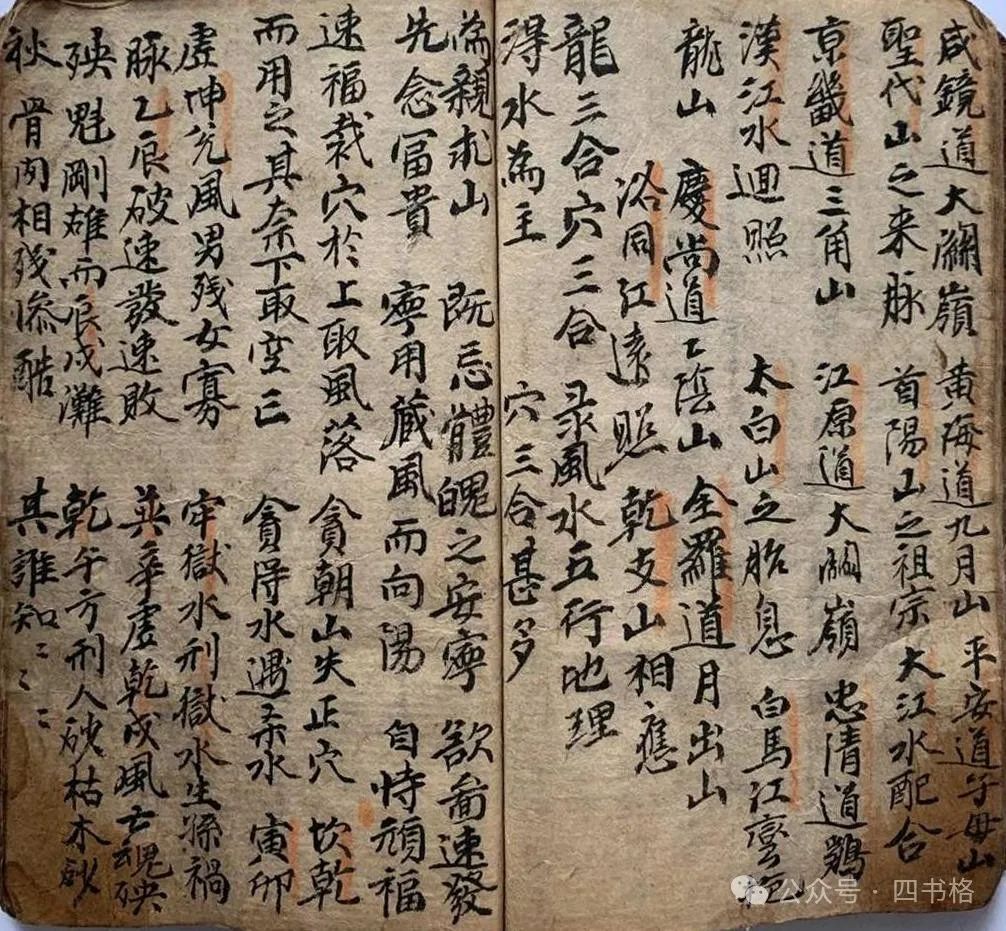 咸鏡道大關嶺 黃海道九月山 平安道子母山
聖代山之来脉 首陽山之祖宗 大江水配合
京畿道三角山 江原道大關嶺 忠清道鷄
漢江水廻照 太白山之胎息 白馬江
龍山 慶尚道乙陰山 全羅道月出山
洛同江遠照 乾支山相應
龍三合穴三合 录風水五行地理
淂水為主 穴三合甚多
為親求山 既忌體魄之安寧 欲啚速發
先念冨貴 寧用蔵風而向陽 自恃頑福
速福裁穴於上取風落 貪朝山失正穴 坎乾
而用之其奈下取空亡 貪淂水遇杀水 寅卯
虛坤兌風男残女寡 牢獄水刑獄水生孫禍
脉乙辰破速發速敗 英辛虛乾戌風亡魂殃
殃魁剛雄而辰戌灘 乾午方刑人砂枯木砂
秋 骨肉相残惨酷 其誰知〻〻〻
公众号 · 四书格